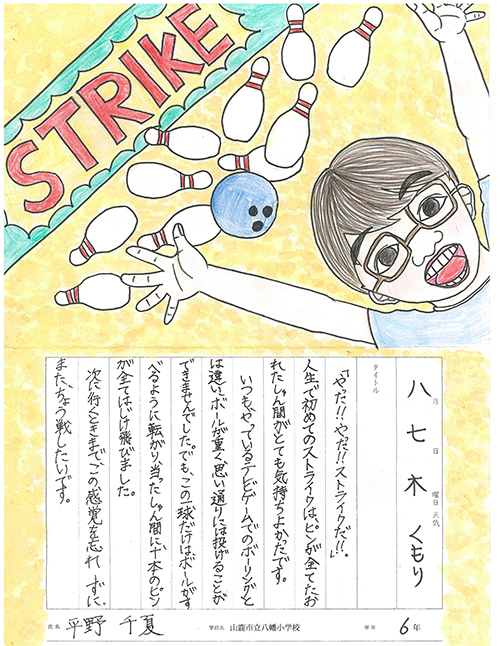 STRIKE
八月七日木曜日 天気 くもり
タイトル
「やった!!やった!!ストライクだ!!。」
人生で初めてのストライクは、ピンが全てたお
れたしゅん間がとても気持ちよかったです。
いつも、やっているテレビゲームでのボーリングと
は違い、ボールが重く、思い通りには投げることが
できませんでした。でも、この一球だけはボールがす
べるように転がり、当ったしゅん間に十本のピン
が全てはじけ飛びました。
次に行くときまで、この感覚を忘れずに、
また、ちょう戦したいです。
氏名 平野 千夏 学校名 山鹿市立八幡小学校 学年 6年